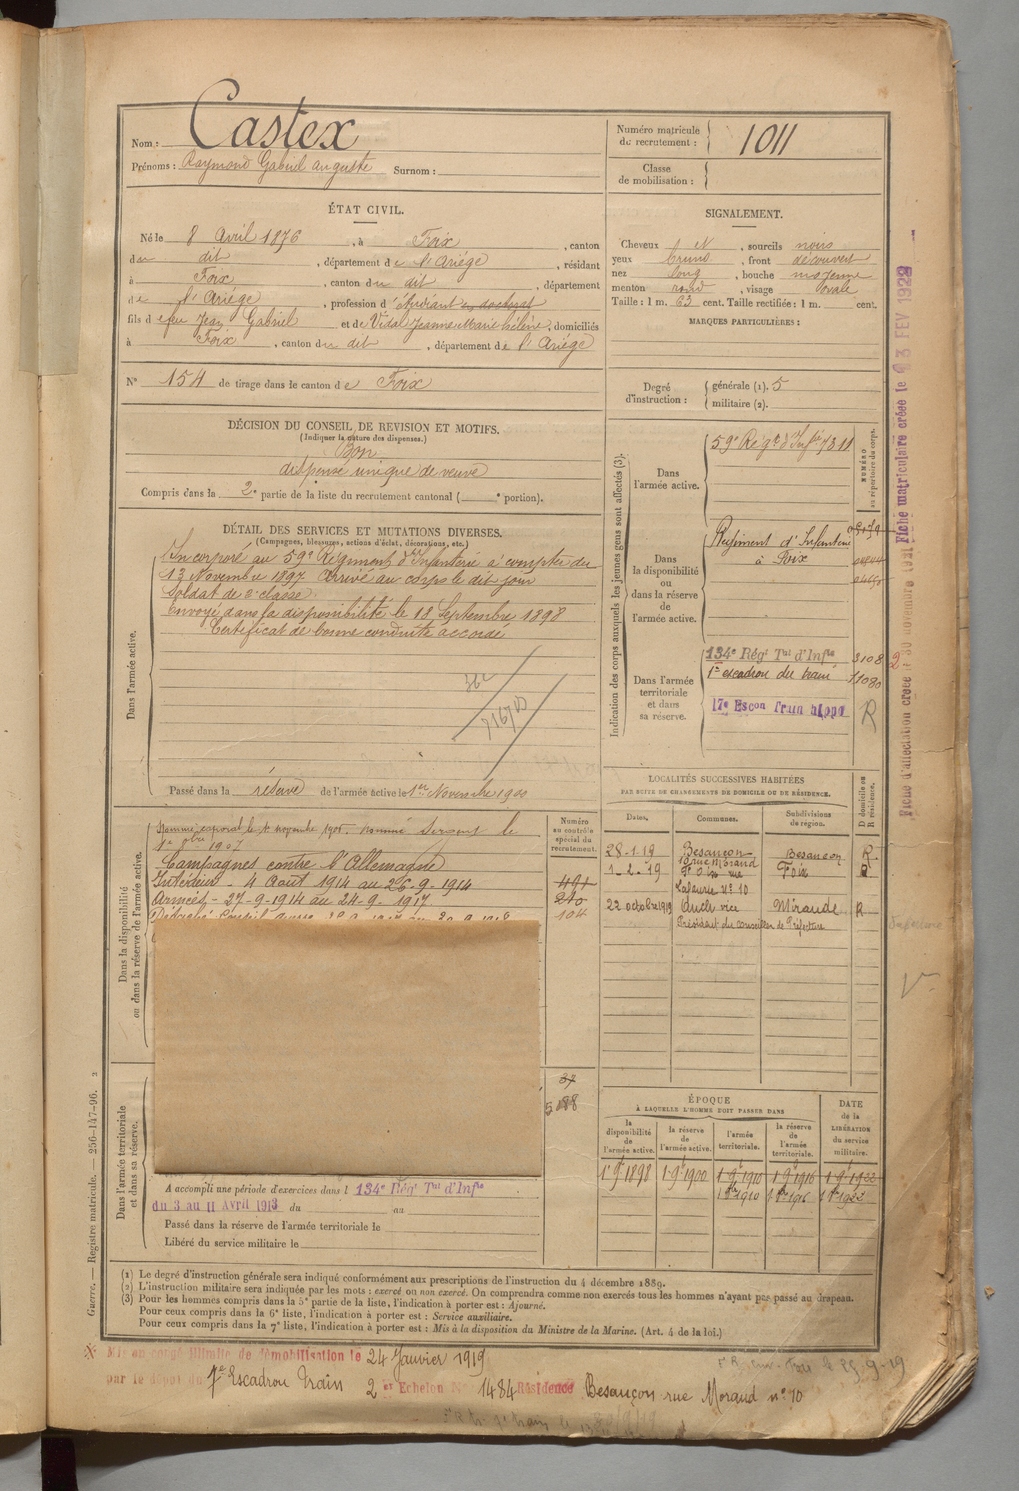 Nom : Castex
Prénoms : Raymond Gabriel Auguste Surnom :
Numéro matricule de recrutement : 1011
Classe de mobilisation :
ÉTAT CIVIL.
Né le 8 Avril 1876, à Foix, canton
du dit, département de l'Ariège, résidant
à Foix, canton du dit, département
de l'Ariège, profession d'étudiant en doctorat
fils de feu Jean Gabriel et de Vidal Jeanne Marie Hélène, domiciliés
à Foix, canton du dit, département de l'Ariège
N° 154 de tirage dans le canton de Foix
SIGNALEMENT.
Cheveux et, sourcils noirs
yeux bruns, front découvert
nez long, bouche moyenne
menton rond, visage ovale
Taille : 1 m. 63 cent. Taille rectifiée : 1 m. cent.
MARQUES PARTICULIÈRES :
Degré d'instruction : générale (1). 5
militaire (2).
DÉCISION DU CONSEIL DE REVISION ET MOTIFS.
(Indiquer la nature des dispenses.)
Bon
dispense unique de veuve
Compris dans la 2e partie de la liste du recrutement cantonal ( e portion).
DÉTAIL DES SERVICES ET MUTATIONS DIVERSES.
(Campagnes, blessures, actions d'éclat, décorations, etc.)
Dans l'armée active.
Incorporé au 59e Régiment d'Infanterie à compter du
13 Novembre 1897. Arrivé au corps le dit jour
Soldat de 2e classe.
Envoyé dans la disponibilité le 18 Septembre 1898
Certificat de bonne conduite accordé
Passé dans la réserve de l'armée active le 1er Novembre 1900
Indication des corps auxquels les jeunes gens sont affectés (3).
NUMÉRO au répertoire du corps.
Dans l'armée active.
59e Régt d'Infie 7311
Dans la disponibilité ou dans la réserve de l'armée active.
Régiment d'Infanterie
à Foix
Dans l'armée territoriale et dans sa réserve.
134e Régt Tal d'Infie 3108
1er escadron du train 11080
17e Escon Train R
Fiche matriculaire créée le 3 FEV 1922
Fiche d'affectation créée le 30 novembre 1921
Dans la disponibilité ou dans la réserve de l'armée active.
Numéro au contrôle spécial du recrutement.
Nommé caporal le 1er novembre 1905. nommé Sergent le
1er 9bre 1907
Campagnes contre l'Allemagne
Intérieur - 4 Août 1914 au 26-9-1914
Armées - 27-9-1914 au 24-9-1917
491
210
104
LOCALITÉS SUCCESSIVES HABITÉES
PAR SUITE DE CHANGEMENTS DE DOMICILE OU DE RÉSIDENCE.
Dates. Communes. Subdivisions de région. D domicile ou R résidence.
28-1-19 Besançon Besançon R
10 rue Morand
1-2-19 Foix rue Foix R
Lafaurie N° 10
22 octobre 1919 Auch vice Mirande R
Président du conseiller de Préfecture
Dans l'armée territoriale et dans sa réserve.
37
5188
A accompli une période d'exercices dans l 134e Régt Tal d'Infie
du 3 au 11 Avril 1913 du au
Passé dans la réserve de l'armée territoriale le
Libéré du service militaire le
ÉPOQUE
À LAQUELLE L'HOMME DOIT PASSER DANS
la disponibilité de l'armée active. la réserve de l'armée active. l'armée territoriale. la réserve de l'armée territoriale. DATE de la LIBÉRATION du service militaire.
1er 9e 1898 1-9e 1900 1-9e 1910 1-9e 1916 1-9e 1922
1 8bre 1910 1 8bre 1916 1 8bre 1922
(1) Le degré d'instruction générale sera indiqué conformément aux prescriptions de l'instruction du 4 décembre 1889.
(2) L'instruction militaire sera indiquée par les mots : exercé ou non exercé. On comprendra comme non exercés tous les hommes n'ayant pas passé au drapeau.
(3) Pour les hommes compris dans la 5e partie de la liste, l'indication à porter est : Ajourné.
Pour ceux compris dans la 6e liste, l'indication à porter est : Service auxiliaire.
Pour ceux compris dans la 7e liste, l'indication à porter est : Mis à la disposition du Ministre de la Marine. (Art. 4 de la loi.)
Guerre. — Registre matricule. — 256-147-96. 2
Mis en congé illimité de démobilisation le 24 Janvier 1919
par le dépôt du 7e Escadron Train 2 er Echelon N° 1484 Résidence Besançon rue Morand n° 10